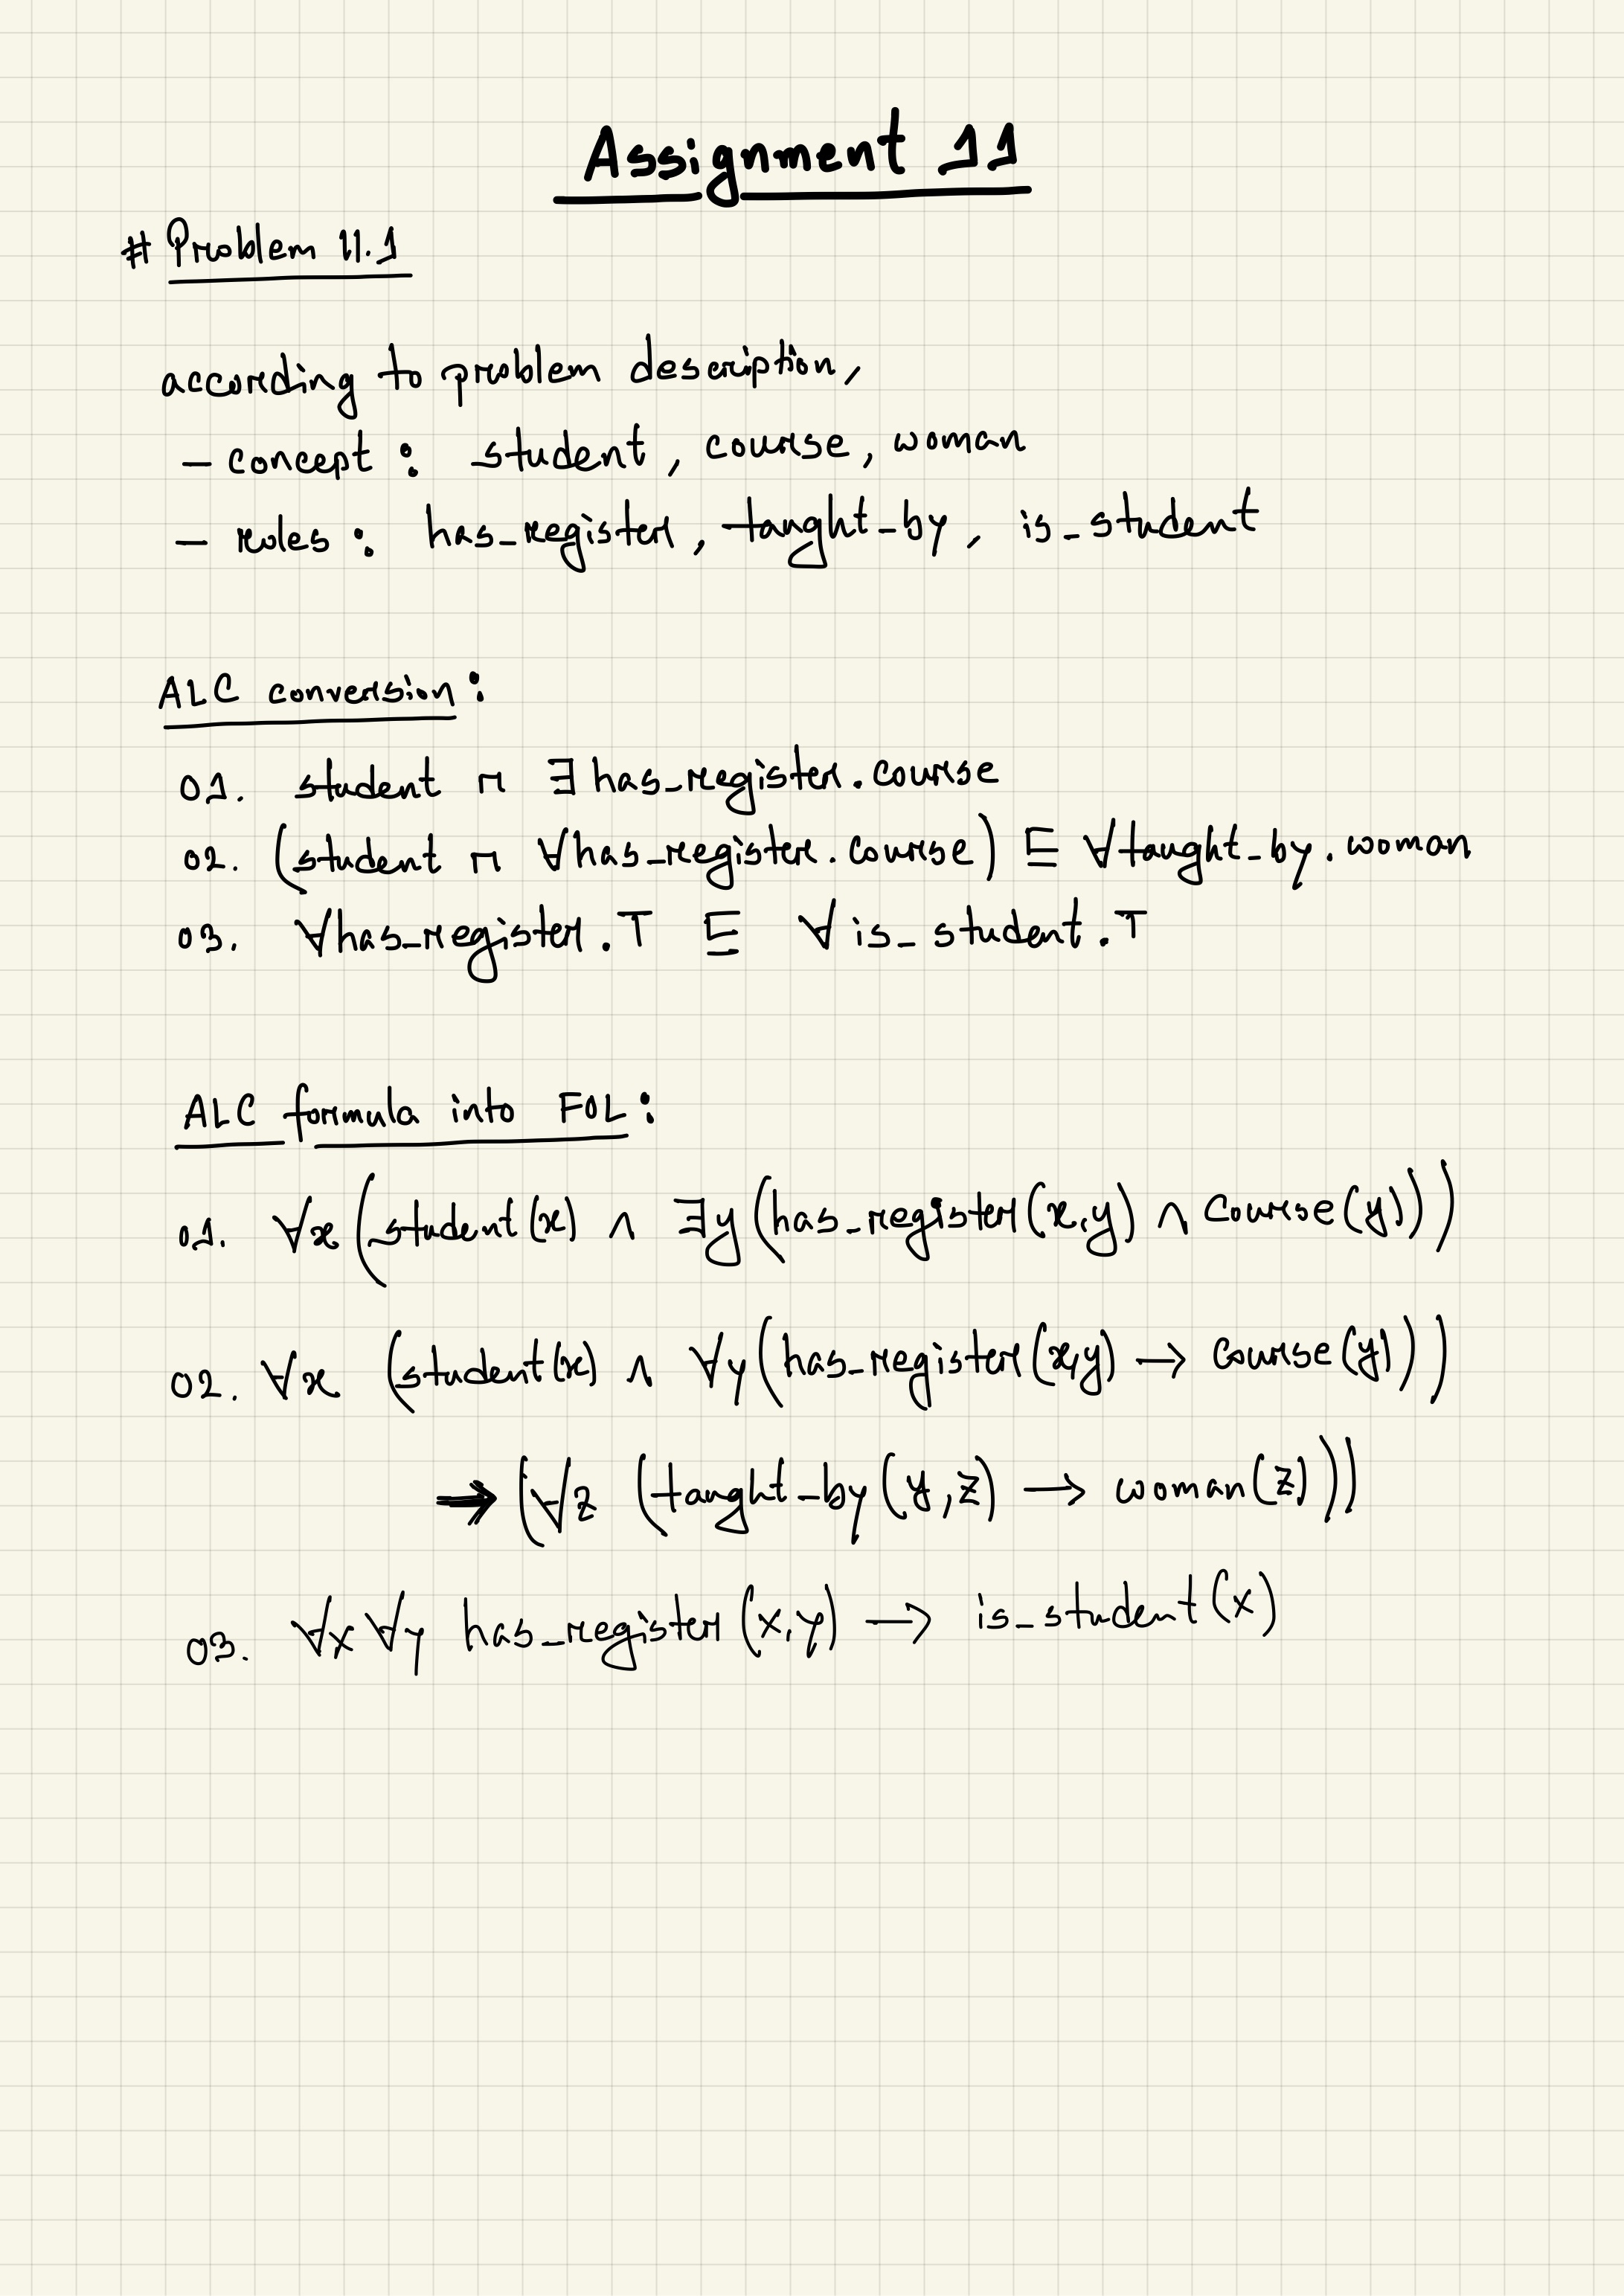 Assignment 11
# Problem 11.1
according to problem description,
– concept : student, course, woman
– roles : has_register, taught_by, is_student
ALC conversion :
01. student ⊓ ∃has_register.course
02. (student ⊓ ∀has_register.course) ⊑ ∀taught_by.woman
03. ∀has_register.⊤ ⊑ ∀is_student.⊤
ALC formula into FOL :
01. ∀x(student(x) ∧ ∃y(has_register(x,y) ∧ Course(y)))
02. ∀x (student(x) ∧ ∀y(has_register(x,y) → Course(y)))
⇒ (∀z (taught_by(y,z) → woman(z)))
03. ∀x∀y has_register(x,y) → is_student(x)